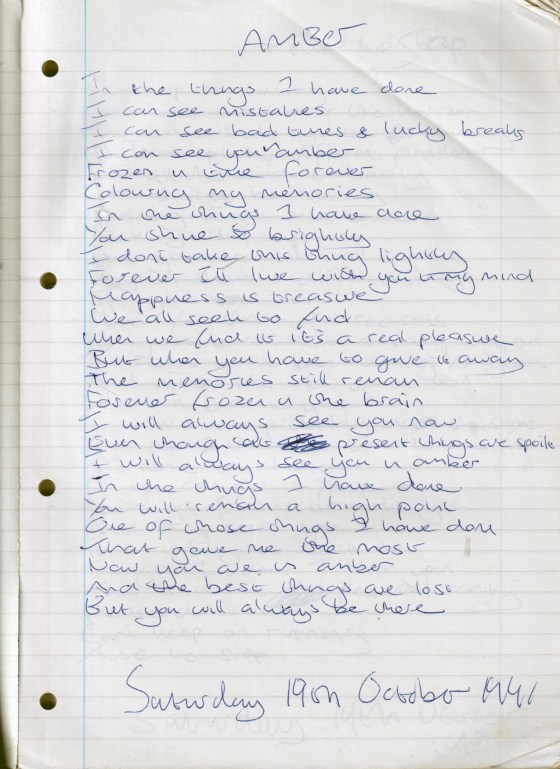 AMBER
In the things I have done
I can see mistakes
I can see bad times & lucky breaks
I can see you in amber
Frozen in time forever
Colouring my memories
In the things I have done
You shine so brightly
I don't take this thing lightly
Forever I'll live with you in my mind
Happiness is treasure
We all seek to find
When we find it it's a real pleasure
But when you have to give it away
The memories still remain
Forever frozen in the brain
I will always see you now
Even though at present things are spoilt
I will always see you in amber
In the things I have done
You will remain a high point
One of those things I have done
That gave me the most
Now you are in amber
And the best things are lost
But you will always be there
Saturday 19th October 1991